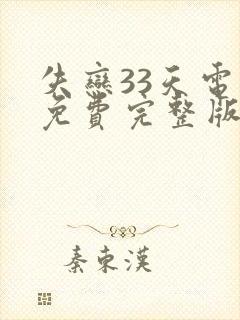 失戀33天電
免費完整版
秦東漢